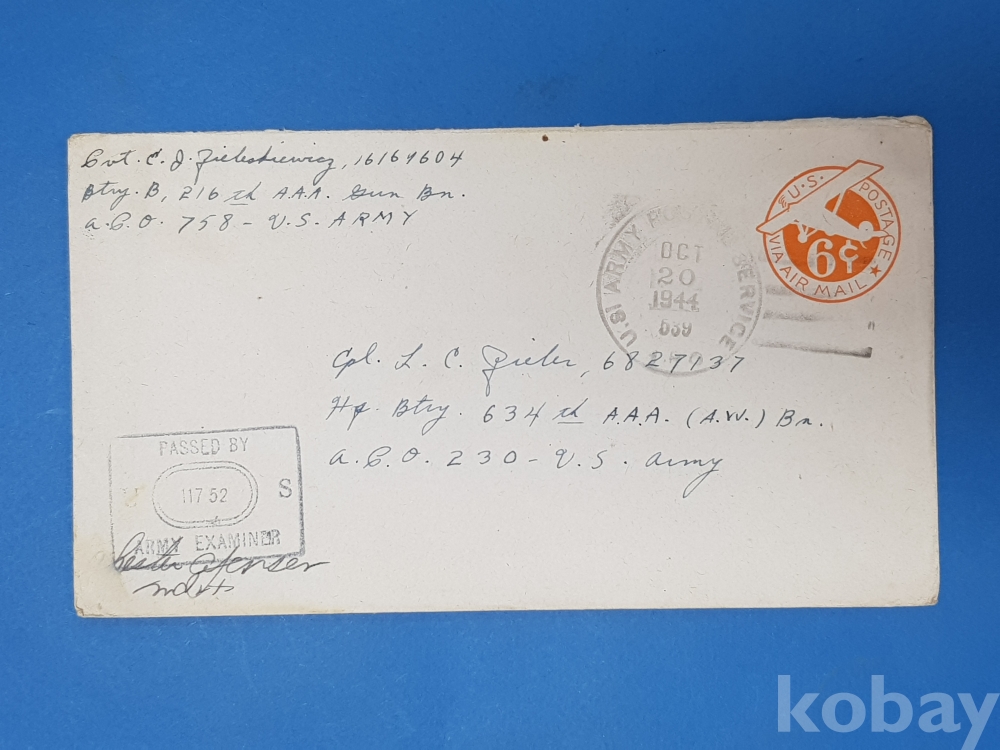 Pvt. C. J. Zieleskiewicz, 16167604
Btry. B, 216 th A.A.A. Gun Bn.
A.P.O. 758 - U.S. ARMY
U.S. POSTAGE
6¢
VIA AIR MAIL
U.S. ARMY POSTAL SERVICE
OCT
20
1944
Cpl. L. C. Zieler, 6827937
Hq. Btry. 634 th A.A.A. (A.W.) Bn.
A.P.O. 230 - U.S. Army
PASSED BY
U 11752 S
ARMY EXAMINER
kobay